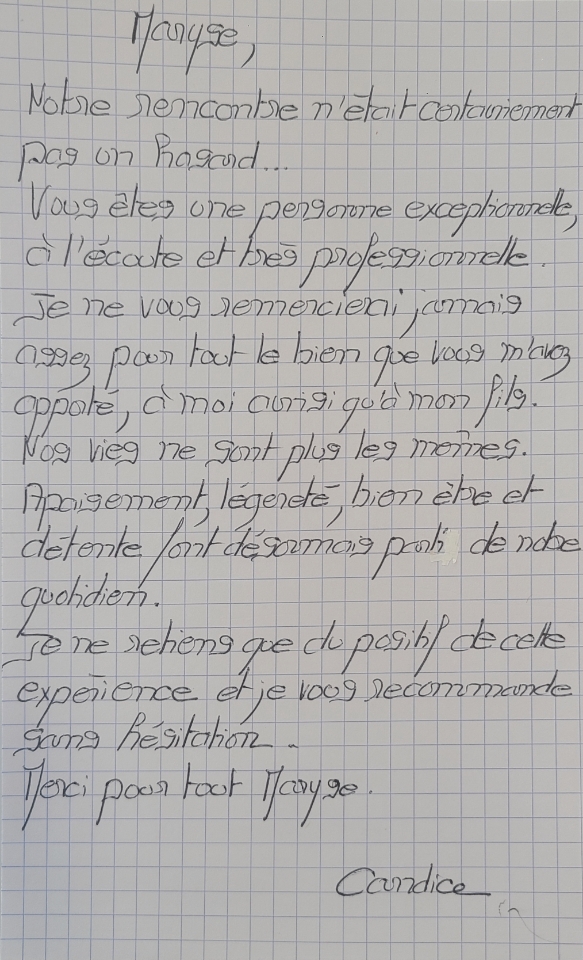 Maryse,
Notre rencontre n'était certainement
pas un hasard...
Vous êtes une personne exceptionnelle,
à l'écoute et très professionnelle.
Je ne vous remercierai jamais
assez pour tout le bien que vous m'avez
apporté, à moi ainsi qu'à mon fils.
Nos vies ne sont plus les mêmes.
Apaisement, légèreté, bien être et
détente font désormais parti de notre
quotidien.
Je ne retiens que du positif de cette
expérience et je vous recommande
sans hésitation.
Merci pour tout Maryse.
Candice